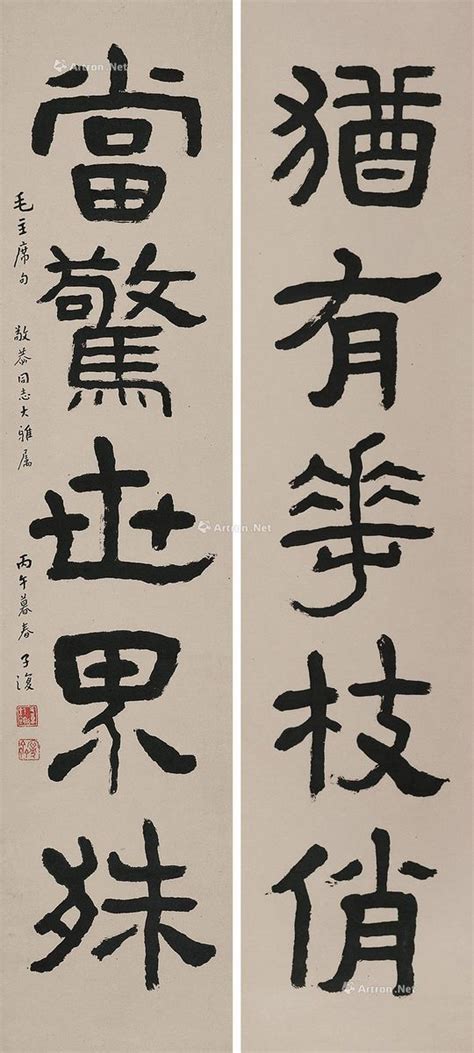 猶有華枝俏
當驚世界殊
毛主席句 敬恭同志大雅屬
丙午暮春 子復
Artron.Net
Artron.Net
Artron.Net
Artron.Net